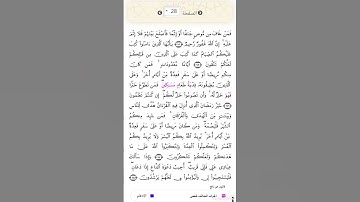 الصفحة 28
فَمَنْ خَافَ مِن مُّوصٍ جَنَفًا أَوْ إِثْمًا فَأَصْلَحَ بَيْنَهُمْ فَلَا إِثْمَ
عَلَيْهِ إِنَّ اللَّهَ غَفُورٌ رَّحِيمٌ يَٰأَيُّهَا الَّذِينَ ءَامَنُوا كُتِبَ
عَلَيْكُمُ الصِّيَامُ كَمَا كُتِبَ عَلَى الَّذِينَ مِن قَبْلِكُمْ
لَعَلَّكُمْ تَتَّقُونَ أَيَّامًا مَّعْدُودَاتٍ فَمَن كَانَ
مِنكُم مَّرِيضًا أَوْ عَلَىٰ سَفَرٍ فَعِدَّةٌ مِّنْ أَيَّامٍ أُخَرَ وَعَلَى
الَّذِينَ يُطِيقُونَهُ فِدْيَةُ طَعَامِ مَسَٰكِينَ فَمَن تَطَوَّعَ خَيْرًا
فَهُوَ خَيْرٌ لَّهُ وَأَن تَصُومُوا خَيْرٌ لَّكُمْ إِن كُنتُمْ تَعْلَمُونَ
شَهْرُ رَمَضَانَ الَّذِي أُنزِلَ فِيهِ الْقُرْءَانُ هُدًى لِّلنَّاسِ
وَبَيِّنَاتٍ مِّنَ الْهُدَىٰ وَالْفُرْقَانِ فَمَن شَهِدَ مِنكُمُ
الشَّهْرَ فَلْيَصُمْهُ وَمَن كَانَ مَرِيضًا أَوْ عَلَىٰ سَفَرٍ فَعِدَّةٌ
مِّنْ أَيَّامٍ أُخَرَ يُرِيدُ اللَّهُ بِكُمُ الْيُسْرَ وَلَا يُرِيدُ بِكُمُ
الْعُسْرَ وَلِتُكْمِلُوا الْعِدَّةَ وَلِتُكَبِّرُوا اللَّهَ عَلَىٰ مَا
هَدَىٰكُمْ وَلَعَلَّكُمْ تَشْكُرُونَ وَإِذَا سَأَلَكَ
عِبَادِي عَنِّي فَإِنِّي قَرِيبٌ أُجِيبُ دَعْوَةَ الدَّاعِ إِذَا دَعَانِ
فَلْيَسْتَجِيبُوا لِي وَلْيُؤْمِنُوا بِي لَعَلَّهُمْ يَرْشُدُونَ